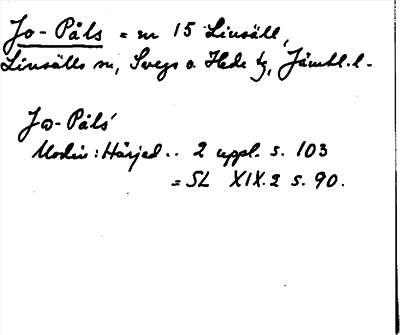 Jo-Påls = nr 15 Linsäll,
Linsälls sn, Svegs o. Hede tg, Jämtl.l-
Jo-Påls'
Modin: Härjed.. 2 uppl. s. 103
= SL XIX.2 s. 90.